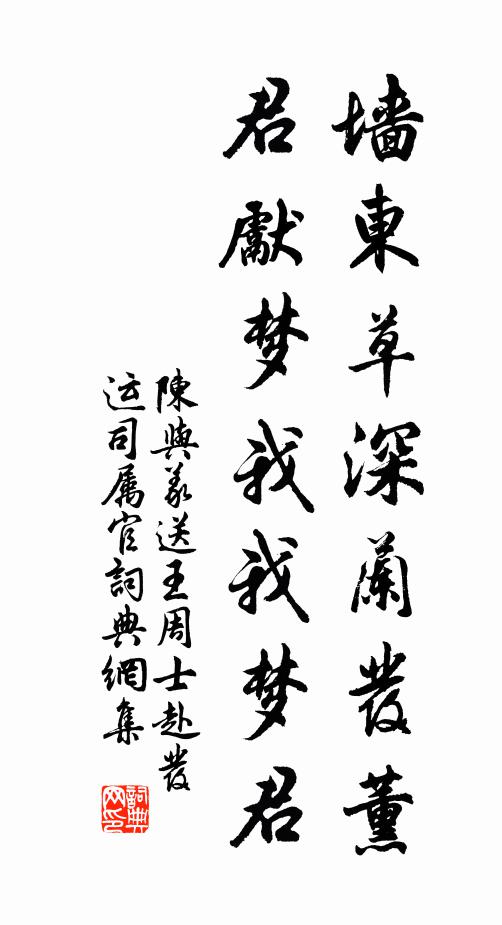 墙東草深蘭發薰
君獻梦我我梦君
陳與義送王周士赴發
运司属官詞典網集
詞典网印